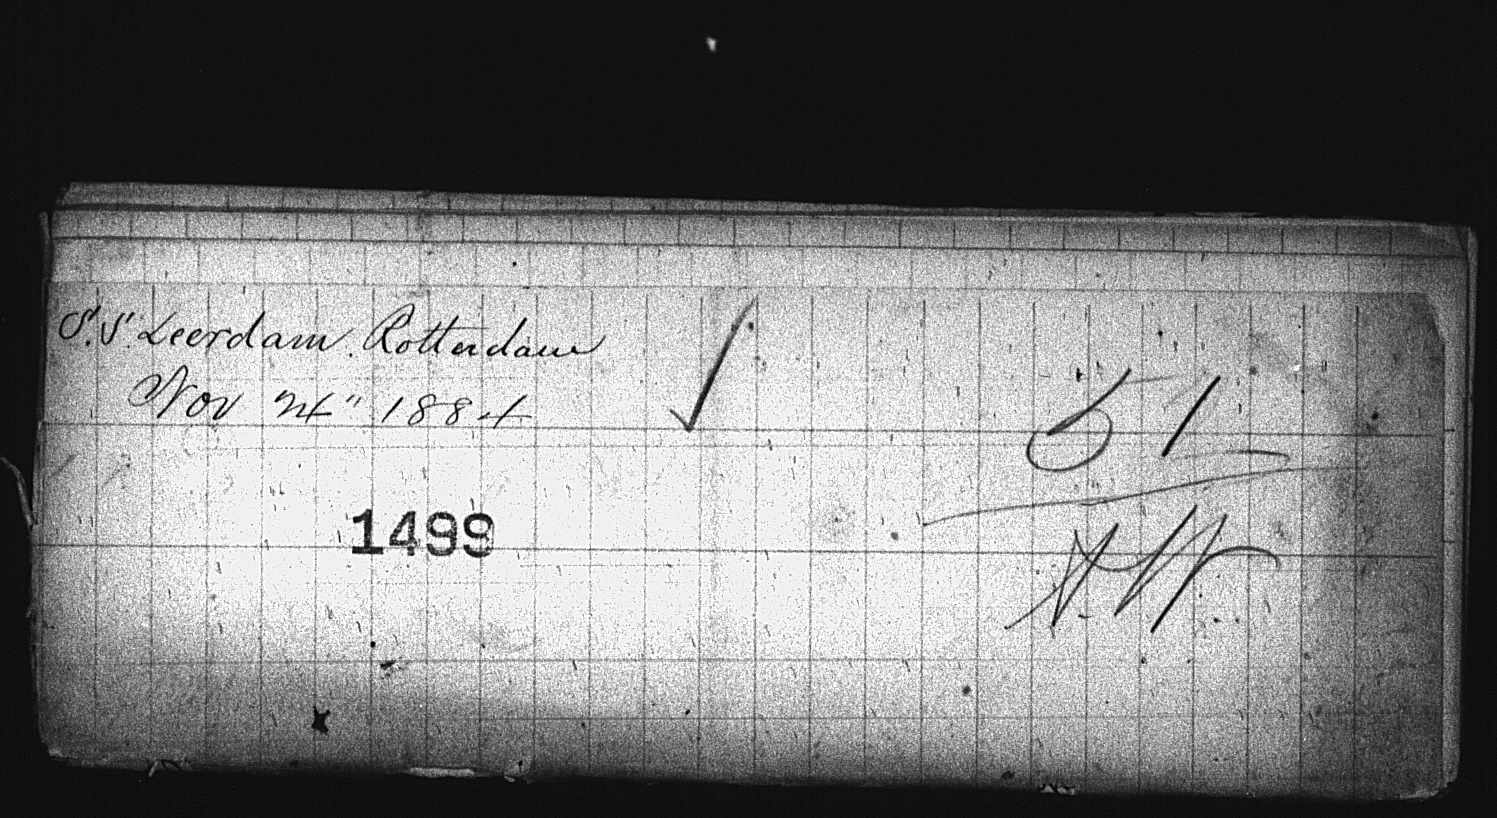 S.S. Leerdam. Rotterdam
Nov 24" 1884
1499
51